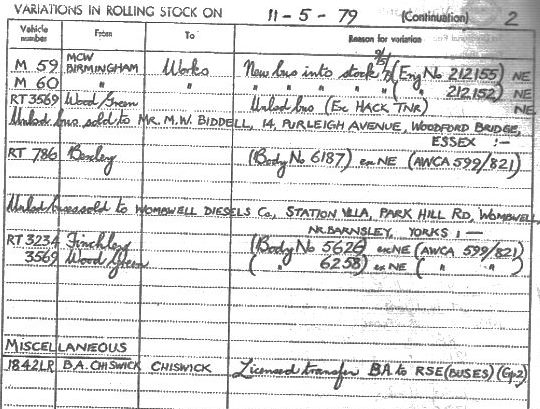 VARIATIONS IN ROLLING STOCK ON 11-5-79 (Continuation) 2
Vehicle number From To Reason for variation
M 59 MCW BIRMINGHAM Works New bus into stock 9/5/79 (Eng No 212155) NE
M 60 " " " " " " ( " " 212152) NE
RT3569 Wood Green Unlsd bus (Ex HACK TNR) NE
Unlsd bus sold to MR. M.W. BIDDELL, 14, PURLEIGH AVENUE, WOODFORD BRIDGE,
ESSEX :-
RT 786 Bexley (Body No 6187) ex NE (AWCA 599/821)
Unlsd buses sold to WOMBWELL DIESELS Co., STATION VILLA, PARK HILL RD, WOMBWELL,
NR. BARNSLEY, YORKS :-
RT 3234 Finchley (Body No 5626) ex NE (AWCA 599/821)
3569 Wood Green ( " 6258) ex NE ( " " )
MISCELLANEOUS
1842LR B.A. CHISWICK CHISWICK Licensed transfer BA to RSE (BUSES) (Gp2)